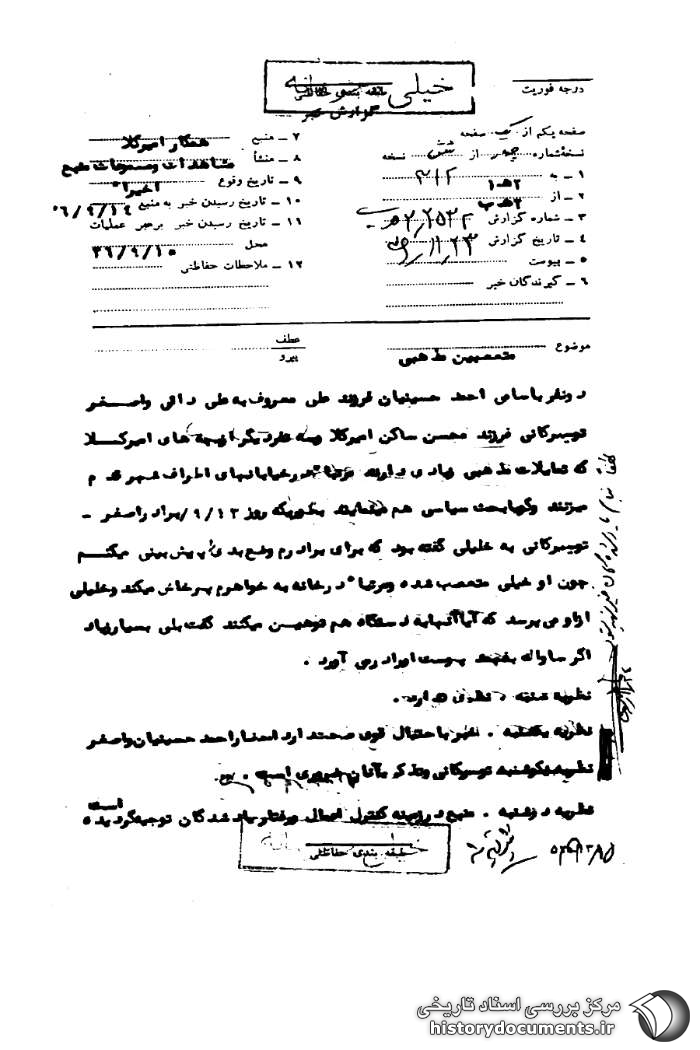 خیلی محرمانه
طبقه بندی حفاظتی
گزارش خبر
درجه فوریت
صفحه یکم از یک صفحه
نسخهٔ شماره از شش نسخه
۱ - به ۳۱۲
۲ - از ۲هـ۱
۳ - شماره گزارش
۴ - تاریخ گزارش
۵ - پیوست
۶ - گیرندگان خبر
۷ - منبع همکار امیرکلا
۸ - منشأ مشاهدات و مسموعات منبع
۹ - تاریخ وقوع اخیراً
۱۰ - تاریخ رسیدن خبر به منبع ۵۶/۹/۱۴
۱۱ - تاریخ رسیدن خبر برهبر عملیات
محل ۳۶/۹/۱۵
۱۲ - ملاحظات حفاظتی
موضوع متعصبین مذهبی
عطف
پیرو
دونفر باسامی احمد حسینیان فرزند علی معروف به علی دائی واصغر
توسرکانی فرزند محسن ساکن امیرکلا وسه نفر دیگر ازبچه های امیرکلا
که تمایلات مذهبی زیادی دارند مرتباً درخیابانهای اطراف شهر قدم
میزنند وگویا بحث سیاسی هم مینمایند بطوریکه روز ۹/۱۲ برادراصغر -
توسرکانی به خلیلی گفته بود که برای برادرم وضع بدی پیش بینی میکنم
چون او خیلی متعصب شده ومرتباً درخانه به خواهرم پرخاش میکند وخلیلی
ازاو می پرسد که آیا آنها به دستگاه هم توهین میکنند گفت بلی بسیارزیاد
اگر ساواک بفهمد پوست اورا در می آورد .
نظریه شنبه . نظری ندارد .
نظریه یکشنبه . خبر باحتمال قوی صحت دارد احضاراحمد حسینیان واصغر
نظریه یکشنبه توسرکانی وتذکر بآنان ضروری است .
نظریه دوشنبه . منبع در زمینه کنترل اعمال ورفتار یاد شدگان توجیه گردیده است
طبقه بندی حفاظتی
مرکز بررسی اسناد تاریخی
historydocuments.ir